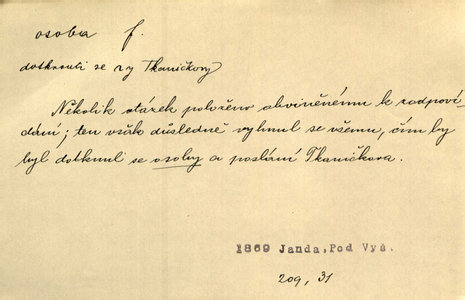 osoba f.
dotknouti se ny Tkaničkovy
Několik otázek položeno obviněnému k zodpoví-
dání; ten však důsledně vyhnul se všemu, čím by
byl dotknul se osoby a poslání Tkaničkova.
1869 Janda, Pod Vyš.
209, 31